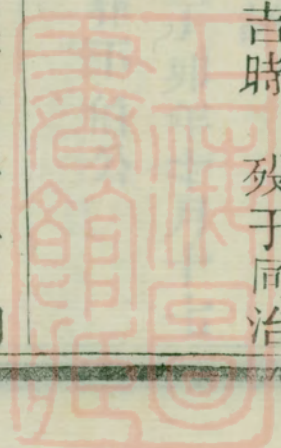 吉時　歿于同治
上海圖
書館藏